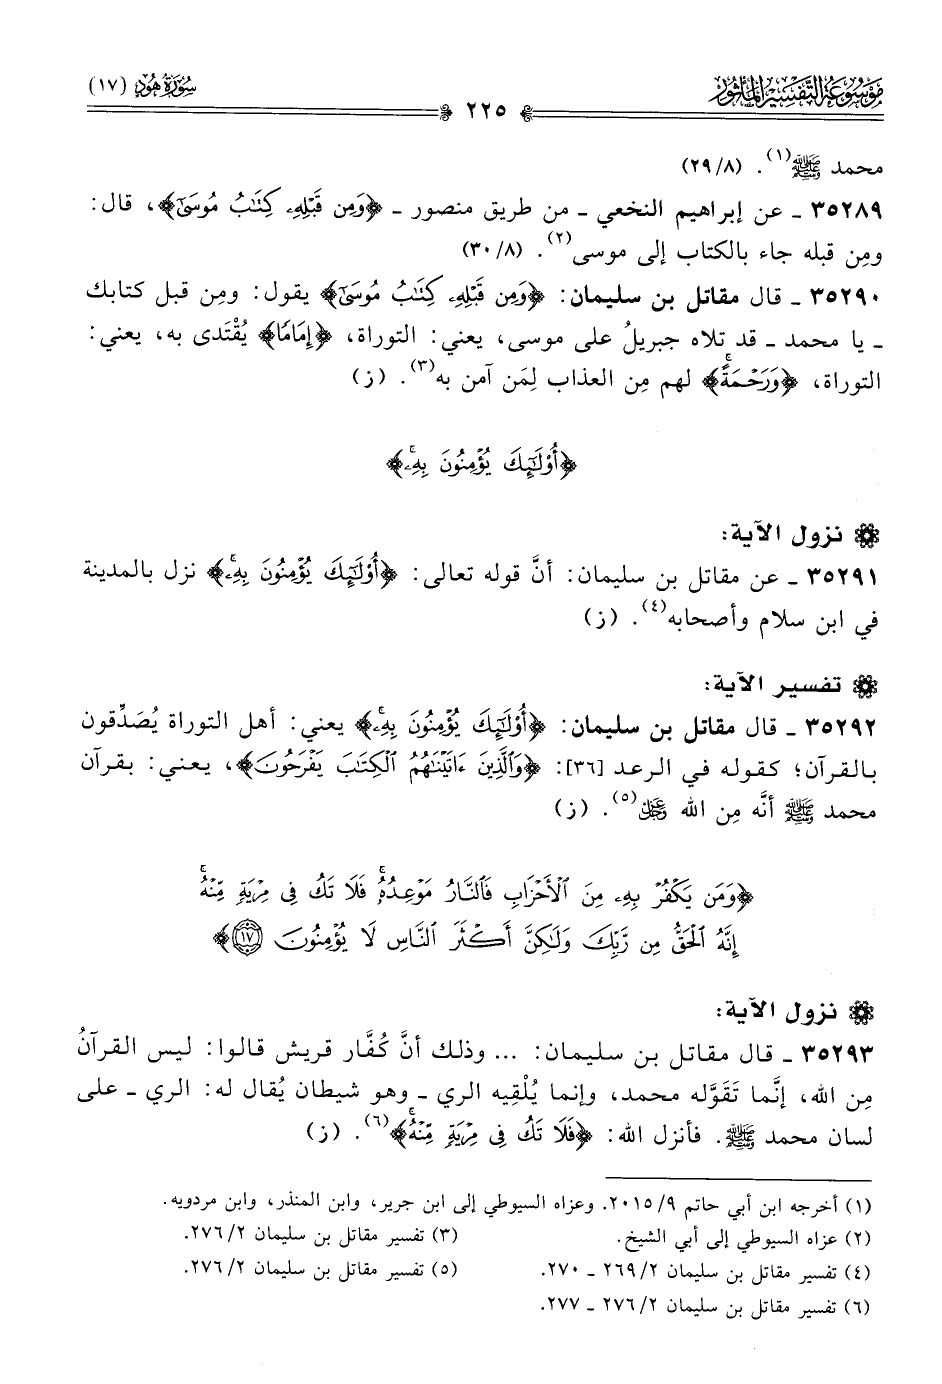 مَوْسُوعَة التَّفْسِيْرِ المَأْثُور
سُورَةُ هُودٍ (١٧)
٢٢٥
محمد ﷺ(١). (٢٩/٨)
٣٥٢٨٩ ـ عن إبراهيم النخعي ـ من طريق منصور ـ ﴿وَمِن قَبْلِهِۦ كِتَٰبُ مُوسَىٰٓ﴾، قال:
ومِن قبله جاء بالكتاب إلى موسى(٢). (٣٠/٨)
٣٥٢٩٠ ـ قال مقاتل بن سليمان: ﴿وَمِن قَبْلِهِۦ كِتَٰبُ مُوسَىٰٓ﴾ يقول: ومِن قبل كتابك
ـ يا محمد ـ قد تلاه جبريلُ على موسى، يعني: التوراة، ﴿إِمَامًا﴾ يُقْتَدى به، يعني:
التوراة، ﴿وَرَحْمَةًۚ﴾ لهم مِن العذاب لِمَن آمن به(٣). (ز)
﴿أُوْلَٰٓئِكَ يُؤْمِنُونَ بِهِۦۚ﴾
نزول الآية:
٣٥٢٩١ ـ عن مقاتل بن سليمان: أنَّ قوله تعالى: ﴿أُوْلَٰٓئِكَ يُؤْمِنُونَ بِهِۦۚ﴾ نزل بالمدينة
في ابن سلام وأصحابه(٤). (ز)
تفسير الآية:
٣٥٢٩٢ ـ قال مقاتل بن سليمان: ﴿أُوْلَٰٓئِكَ يُؤْمِنُونَ بِهِۦۚ﴾ يعني: أهل التوراة يُصَدِّقون
بالقرآن؛ كقوله في الرعد [٣٦]: ﴿وَٱلَّذِينَ ءَاتَيْنَٰهُمُ ٱلْكِتَٰبَ يَفْرَحُونَ﴾، يعني: بقرآن
محمد ﷺ أنَّه مِن الله عَزَّوَجَلَّ(٥). (ز)
﴿وَمَن يَكْفُرْ بِهِۦ مِنَ ٱلْأَحْزَابِ فَٱلنَّارُ مَوْعِدُهُۥۚ فَلَا تَكُ فِى مِرْيَةٍ مِّنْهُۚ
إِنَّهُ ٱلْحَقُّ مِن رَّبِّكَ وَلَٰكِنَّ أَكْثَرَ ٱلنَّاسِ لَا يُؤْمِنُونَ ١٧﴾
نزول الآية:
٣٥٢٩٣ ـ قال مقاتل بن سليمان: ... وذلك أنَّ كُفَّار قريش قالوا: ليس القرآنُ
مِن الله، إنَّما تَقَوَّله محمد، وإنما يُلْقِيه الري ـ وهو شيطان يُقال له: الري ـ على
لسان محمد ﷺ. فأنزل الله: ﴿فَلَا تَكُ فِى مِرْيَةٍ مِّنْهُۚ﴾(٦). (ز)
(١) أخرجه ابن أبي حاتم ٢٠١٥/٩. وعزاه السيوطي إلى ابن جرير، وابن المنذر، وابن مردويه.
(٢) عزاه السيوطي إلى أبي الشيخ. (٣) تفسير مقاتل بن سليمان ٢٧٦/٢.
(٤) تفسير مقاتل بن سليمان ٢٦٩/٢ ـ ٢٧٠. (٥) تفسير مقاتل بن سليمان ٢٧٦/٢.
(٦) تفسير مقاتل بن سليمان ٢٧٦/٢ ـ ٢٧٧.